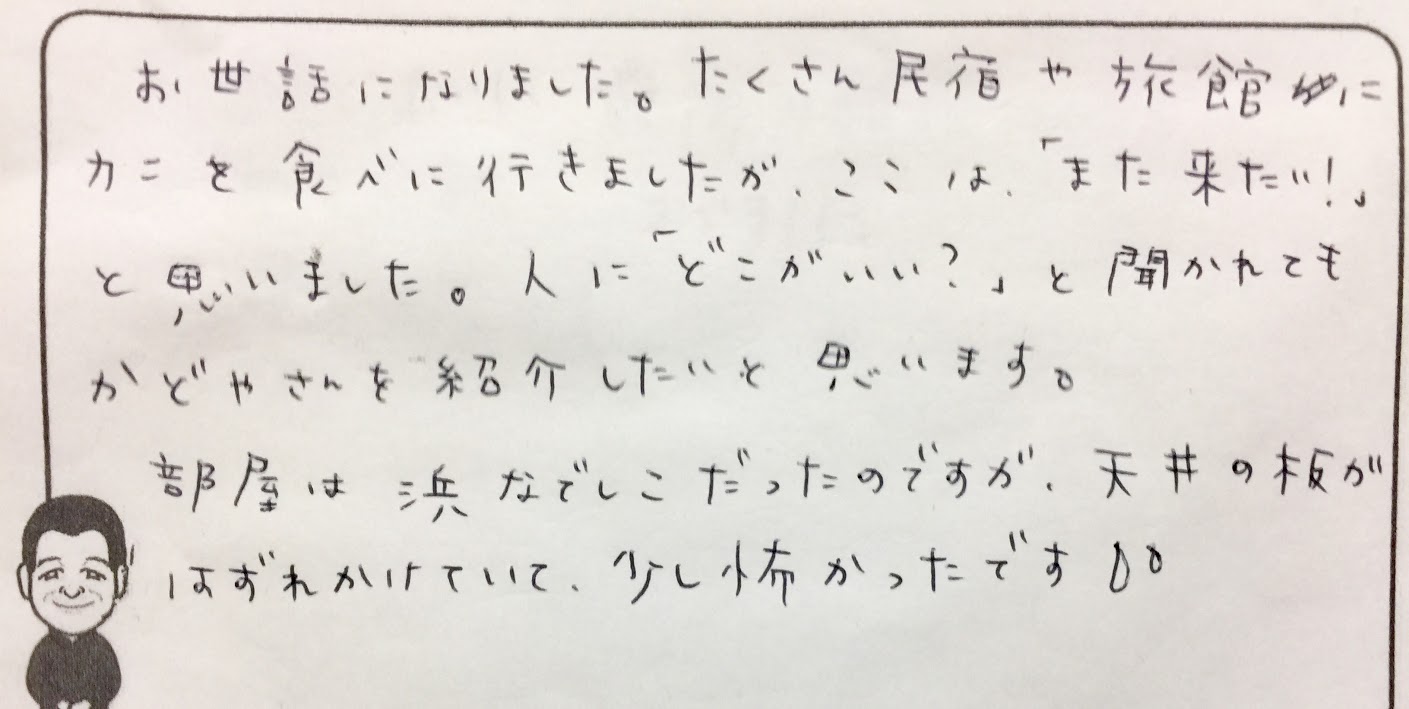 お世話になりました。たくさん民宿や旅館に
カニを食べに行きましたが、ここは、「また来たい!」
と思いました。人に「どこがいい?」と聞かれても
かどやさんを紹介したいと思います。
部屋は浜なでしこだったのですが、天井の板が
はずれかけていて、少し怖かったです